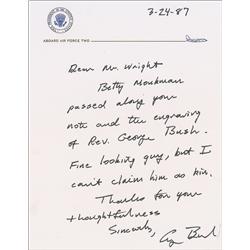 3-24-87
ABOARD AIR FORCE TWO
Dear Mr. Wright
Betty Monkman
passed along your
note and the engraving
of Rev. George Bush.
Fine looking guy, but I
can't claim him as kin.
Thanks for your
thoughtfulness
Sincerely,
G Bush